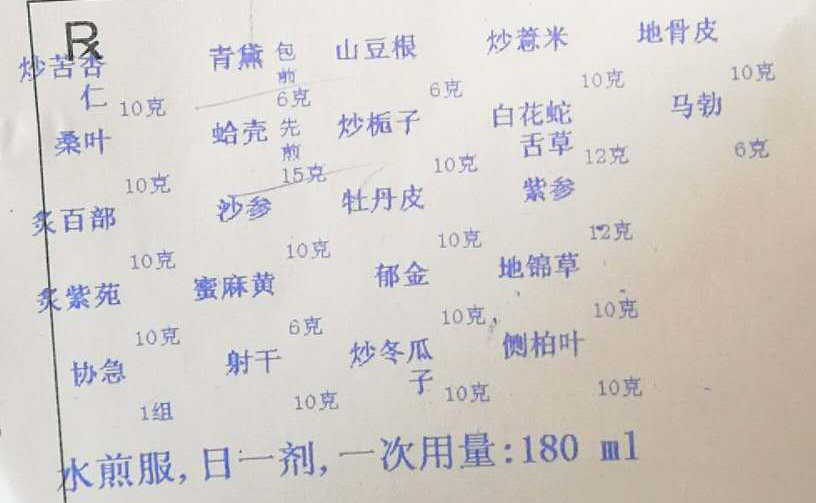 ℞
炒苦杏仁 10克 青黛 包煎 6克 山豆根 6克 炒薏米 10克 地骨皮 10克
桑叶 10克 蛤壳 先煎 15克 炒栀子 10克 白花蛇舌草 12克 马勃 6克
炙百部 10克 沙参 10克 牡丹皮 10克 紫参 12克
炙紫苑 10克 蜜麻黄 6克 郁金 10克 地锦草 10克
协急 1组 射干 10克 炒冬瓜子 10克 侧柏叶 10克
水煎服,日一剂,一次用量:180 ml